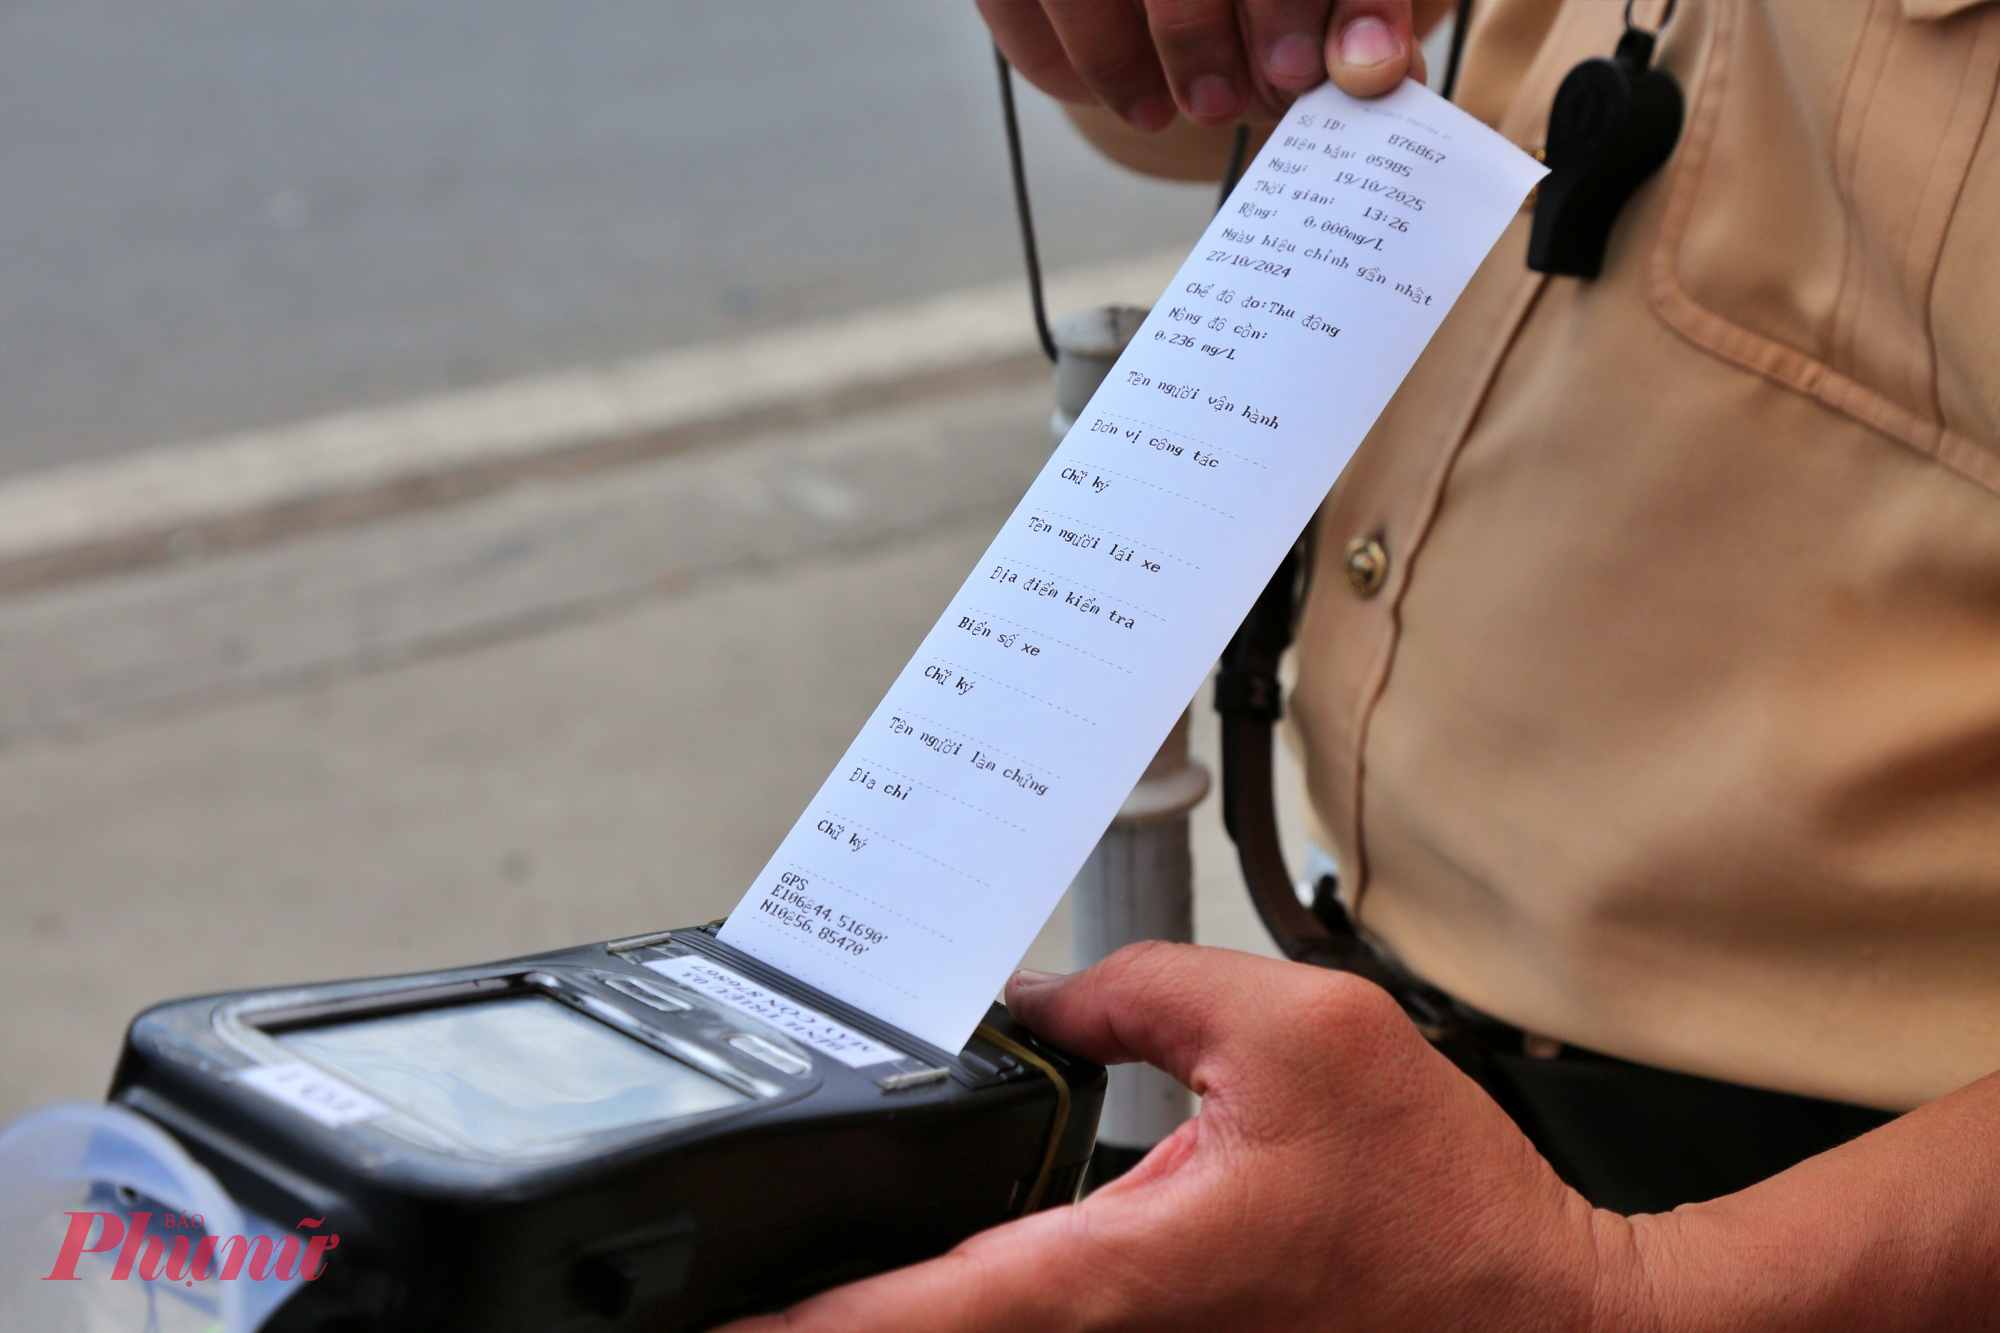 Số ID: 876867
Biên bản: 05985
Ngày: 19/10/2025
Thời gian: 13:26
Rỗng: 0.000mg/L
Ngày hiệu chỉnh gần nhất
27/10/2024
Chế độ đo:Thu động
Nồng độ cồn:
0.236 mg/L
Tên người vận hành
Đơn vị công tác
Chữ ký
Tên người lái xe
Địa điểm kiểm tra
Biển số xe
Chữ ký
Tên người làm chứng
Địa chỉ
Chữ ký
GPS
E106e44.51690'
N10e56.85470'
BINH TRIEU/03
MÁY CỒN 876867
BÁO
Phụ nữ